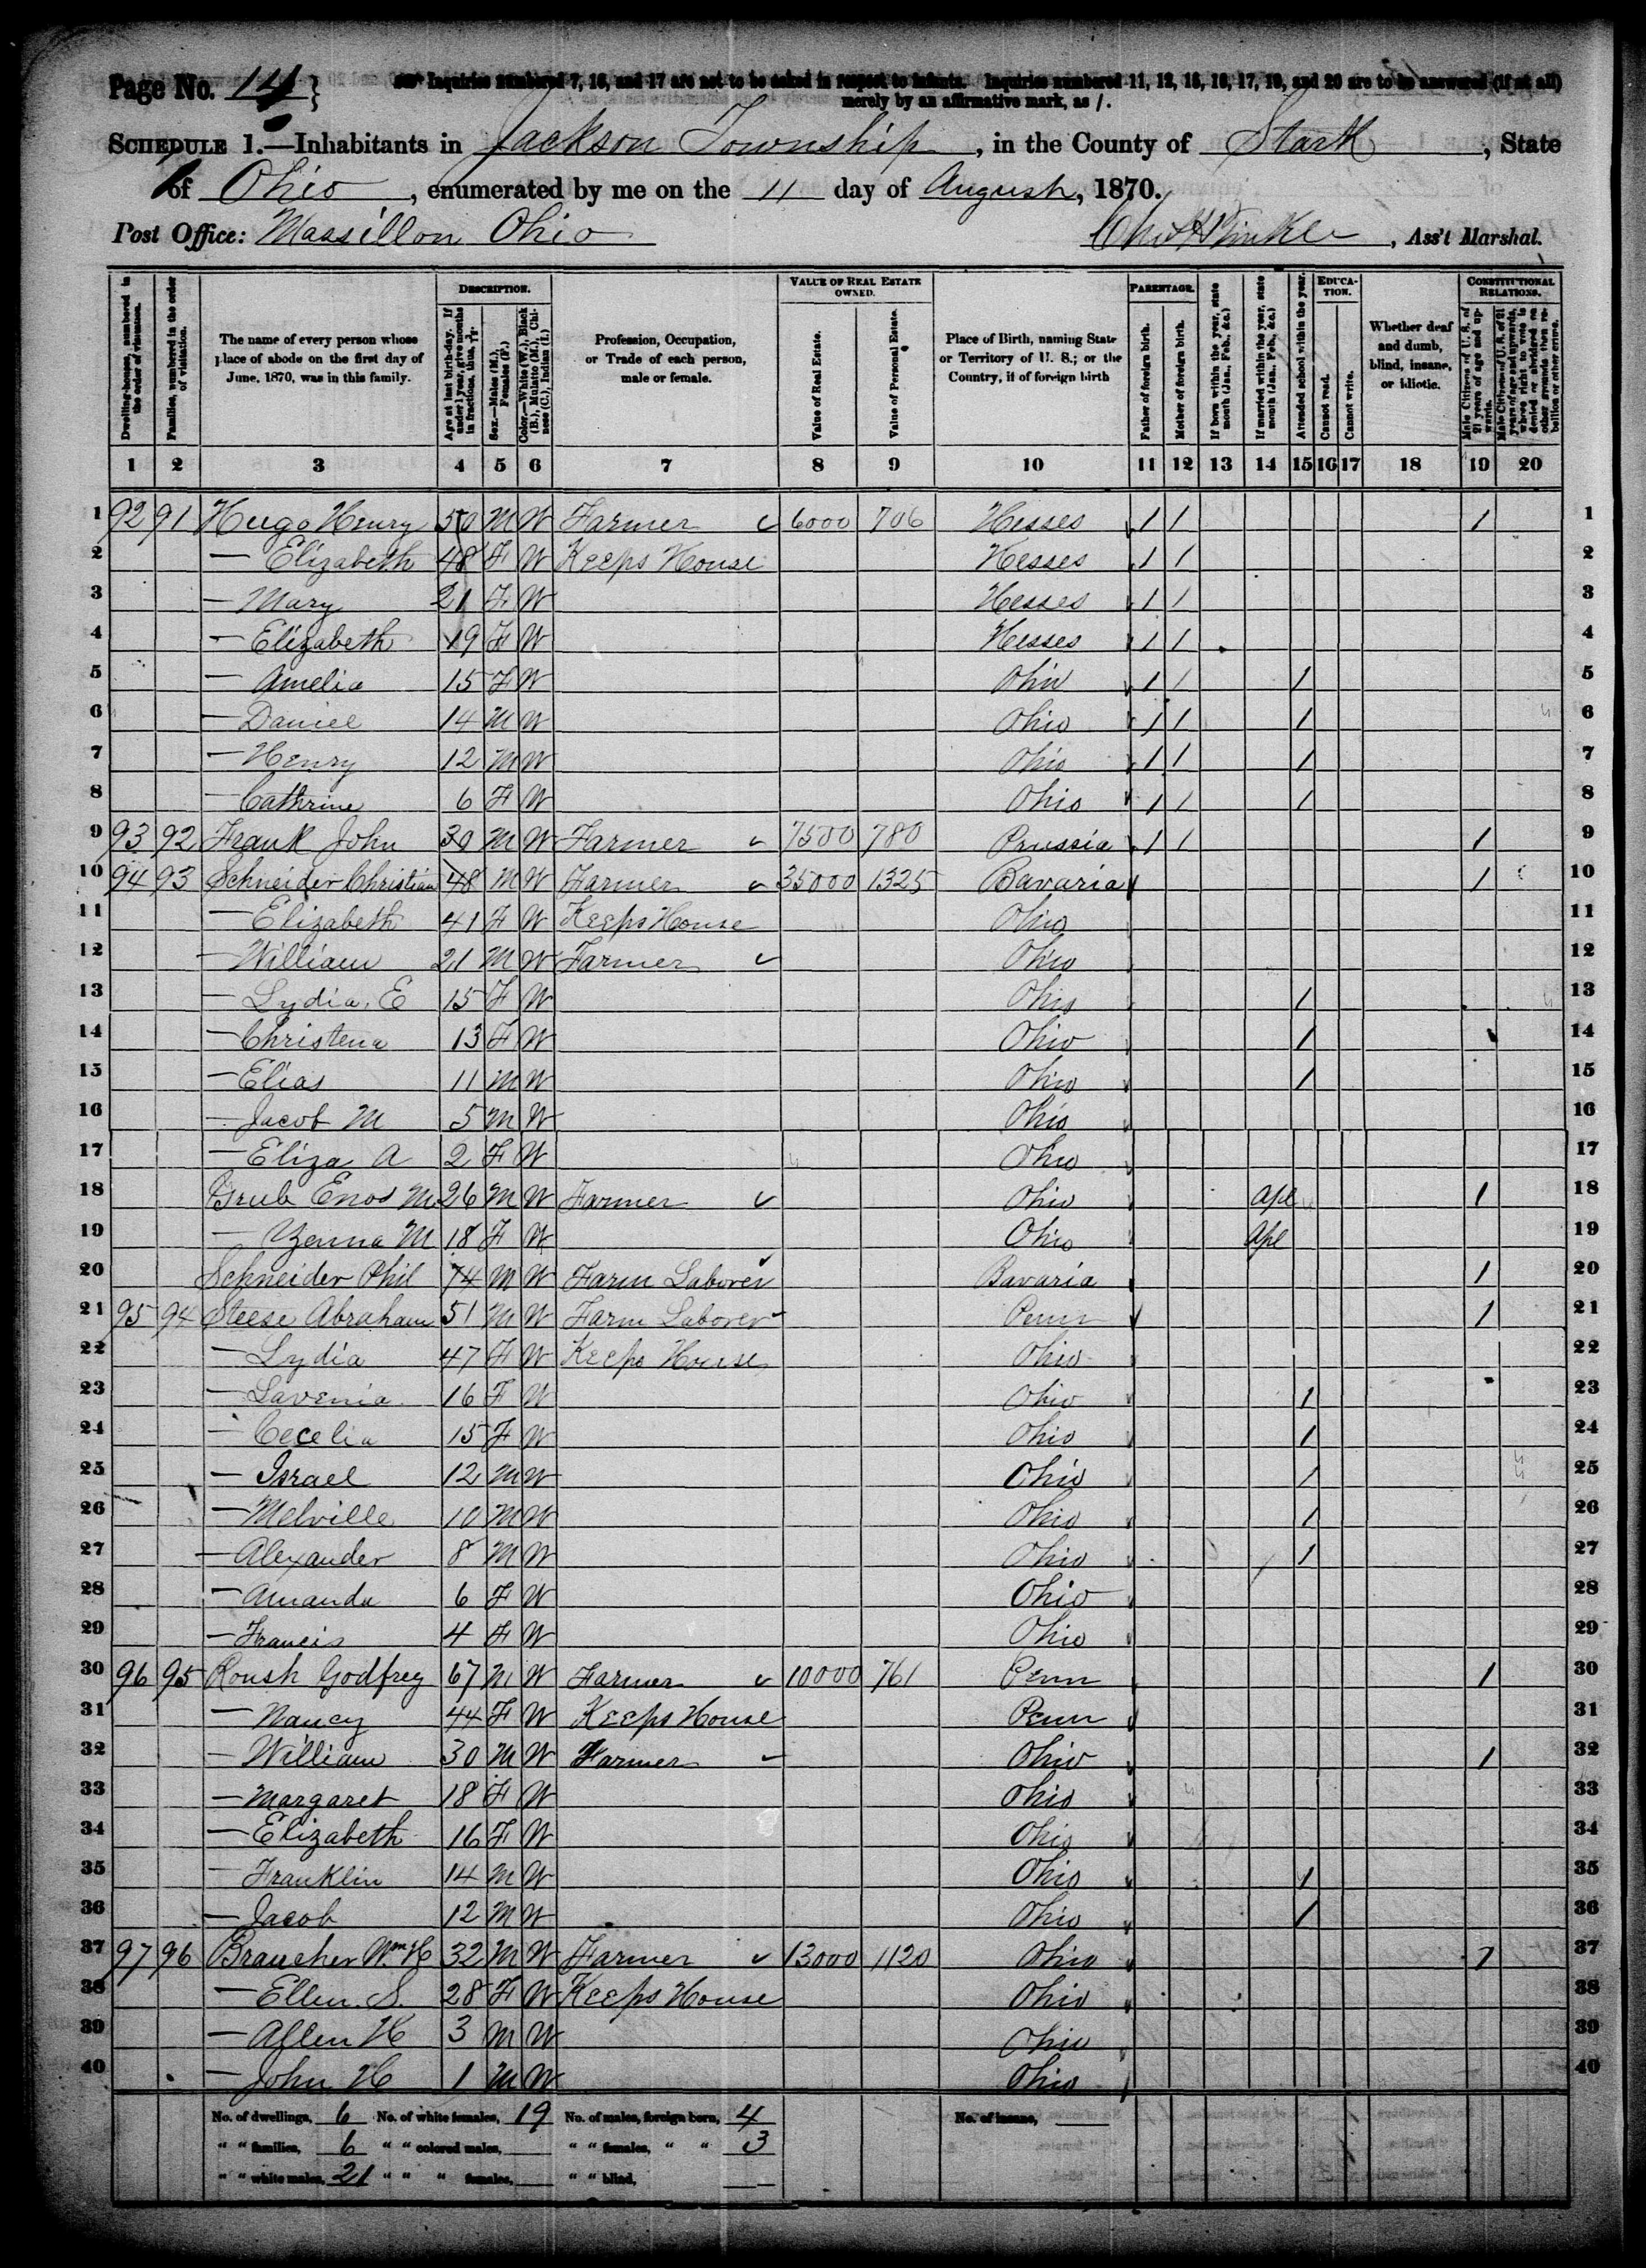 Page No. 14}
Inquiries numbered 7, 16, and 17 are not to be asked in respect to infants. Inquiries numbered 11, 12, 15, 16, 17, 19, and 20 are to be answered (if at all)
merely by an affirmative mark, as /.
SCHEDULE 1.—Inhabitants in Jackson Township, in the County of Stark, State
of Ohio, enumerated by me on the 11 day of August, 1870.
Post Office: Massillon Ohio
, Ass't Marshal.
Dwelling-houses, numbered in the order of visitation.
Families, numbered in the order of visitation.
The name of every person whose place of abode on the first day of June, 1870, was in this family.
DESCRIPTION.
Age at last birth-day. If under 1 year, give months in fractions, thus,
Sex.—Males (M.), Females (F.)
Color.—White (W.), Black (B.), Mulatto (M.), Chinese (C.), Indian (I.)
Profession, Occupation, or Trade of each person, male or female.
VALUE OF REAL ESTATE OWNED.
Value of Real Estate.
Value of Personal Estate.
Place of Birth, naming State or Territory of U. S.; or the Country, if of foreign birth
PARENTAGE.
Father of foreign birth.
Mother of foreign birth.
If born within the year, state month (Jan., Feb., &c.)
If married within the year, state month (Jan., Feb., &c.)
Attended school within the year.
EDUCATION.
Cannot read.
Cannot write.
Whether deaf and dumb, blind, insane, or idiotic.
CONSTITUTIONAL RELATIONS.
Male Citizens of U. S. of 21 years of age and upwards.
Male Citizens of U. S. of 21 years of age and upwards, whose right to vote is denied or abridged on other grounds than rebellion or other crime.
1 2 3 4 5 6 7 8 9 10 11 12 13 14 15 16 17 18 19 20
1 92 91 Hugo Henry 50 M W Farmer 6000 706 Hesses / / / 1
2 — Elizabeth 48 F W Keeps House Hesses / / 2
3 — Mary 21 F W Hesses / / 3
4 — Elizabeth 19 F W Hesses / / 4
5 — Amelia 15 F W Ohio / / / 5
6 — Daniel 14 M W Ohio / / / 6
7 — Henry 12 M W Ohio / / / 7
8 — Cathrine 6 F W Ohio / / / 8
9 93 92 Frank John 30 M W Farmer 7500 780 Prussia / / / 9
10 94 93 Schneider Christian 48 M W Farmer 35000 1325 Bavaria / 10
11 — Elizabeth 41 F W Keeps House Ohio 11
12 — William 21 M W Farmer Ohio 12
13 — Lydia. E 15 F W Ohio / 13
14 — Christena 13 F W Ohio / 14
15 — Elias 11 M W Ohio / 15
16 — Jacob M 5 M W Ohio 16
17 — Eliza A 2 F W Ohio 17
18 Grub Enos M 26 M W Farmer Ohio Apl / 18
19 — M 18 F W Ohio Apl 19
20 Schneider Phil 74 M W Farm Laborer Bavaria / 20
21 95 94 Steese Abraham 51 M W Farm Laborer Penn / 21
22 — Lydia 47 F W Keeps House Ohio 22
23 — Lavenia 16 F W Ohio / 23
24 — Cecelia 15 F W Ohio / 24
25 — Israel 12 M W Ohio / 25
26 — Melville 10 M W Ohio / 26
27 — Alexander 8 M W Ohio / 27
28 — Amanda 6 F W Ohio 28
29 — Francis 4 F W Ohio 29
30 96 95 Roush Godfrey 67 M W Farmer 10000 761 Penn / 30
31 — Nancy 44 F W Keeps House Penn 31
32 — William 30 M W Farmer Ohio / 32
33 — Margaret 18 F W Ohio 33
34 — Elizabeth 16 F W Ohio 34
35 — Franklin 14 M W Ohio / 35
36 — Jacob 12 M W Ohio / 36
37 97 96 Braucher Wm H 32 M W Farmer 13000 1120 Ohio / 37
38 — Ellen. S. 28 F W Keeps House Ohio 38
39 — Allen H 3 M W Ohio 39
40 — John H 1 M W Ohio 40
No. of dwellings, 6 No. of white females, 19 No. of males, foreign born, 4 No. of insane,
" " families, 6 " " colored males, " " females, " " 3
" " white males, 21 " " " females, " " blind,